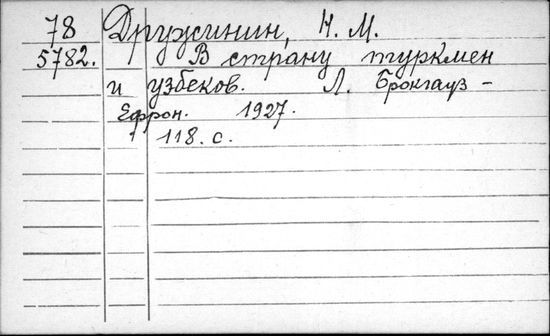 78 Дружинин, Н. М.
5782. В страну туркмен
и узбеков. Л. Брокгауз-
Ефрон. 1927.
118. с.